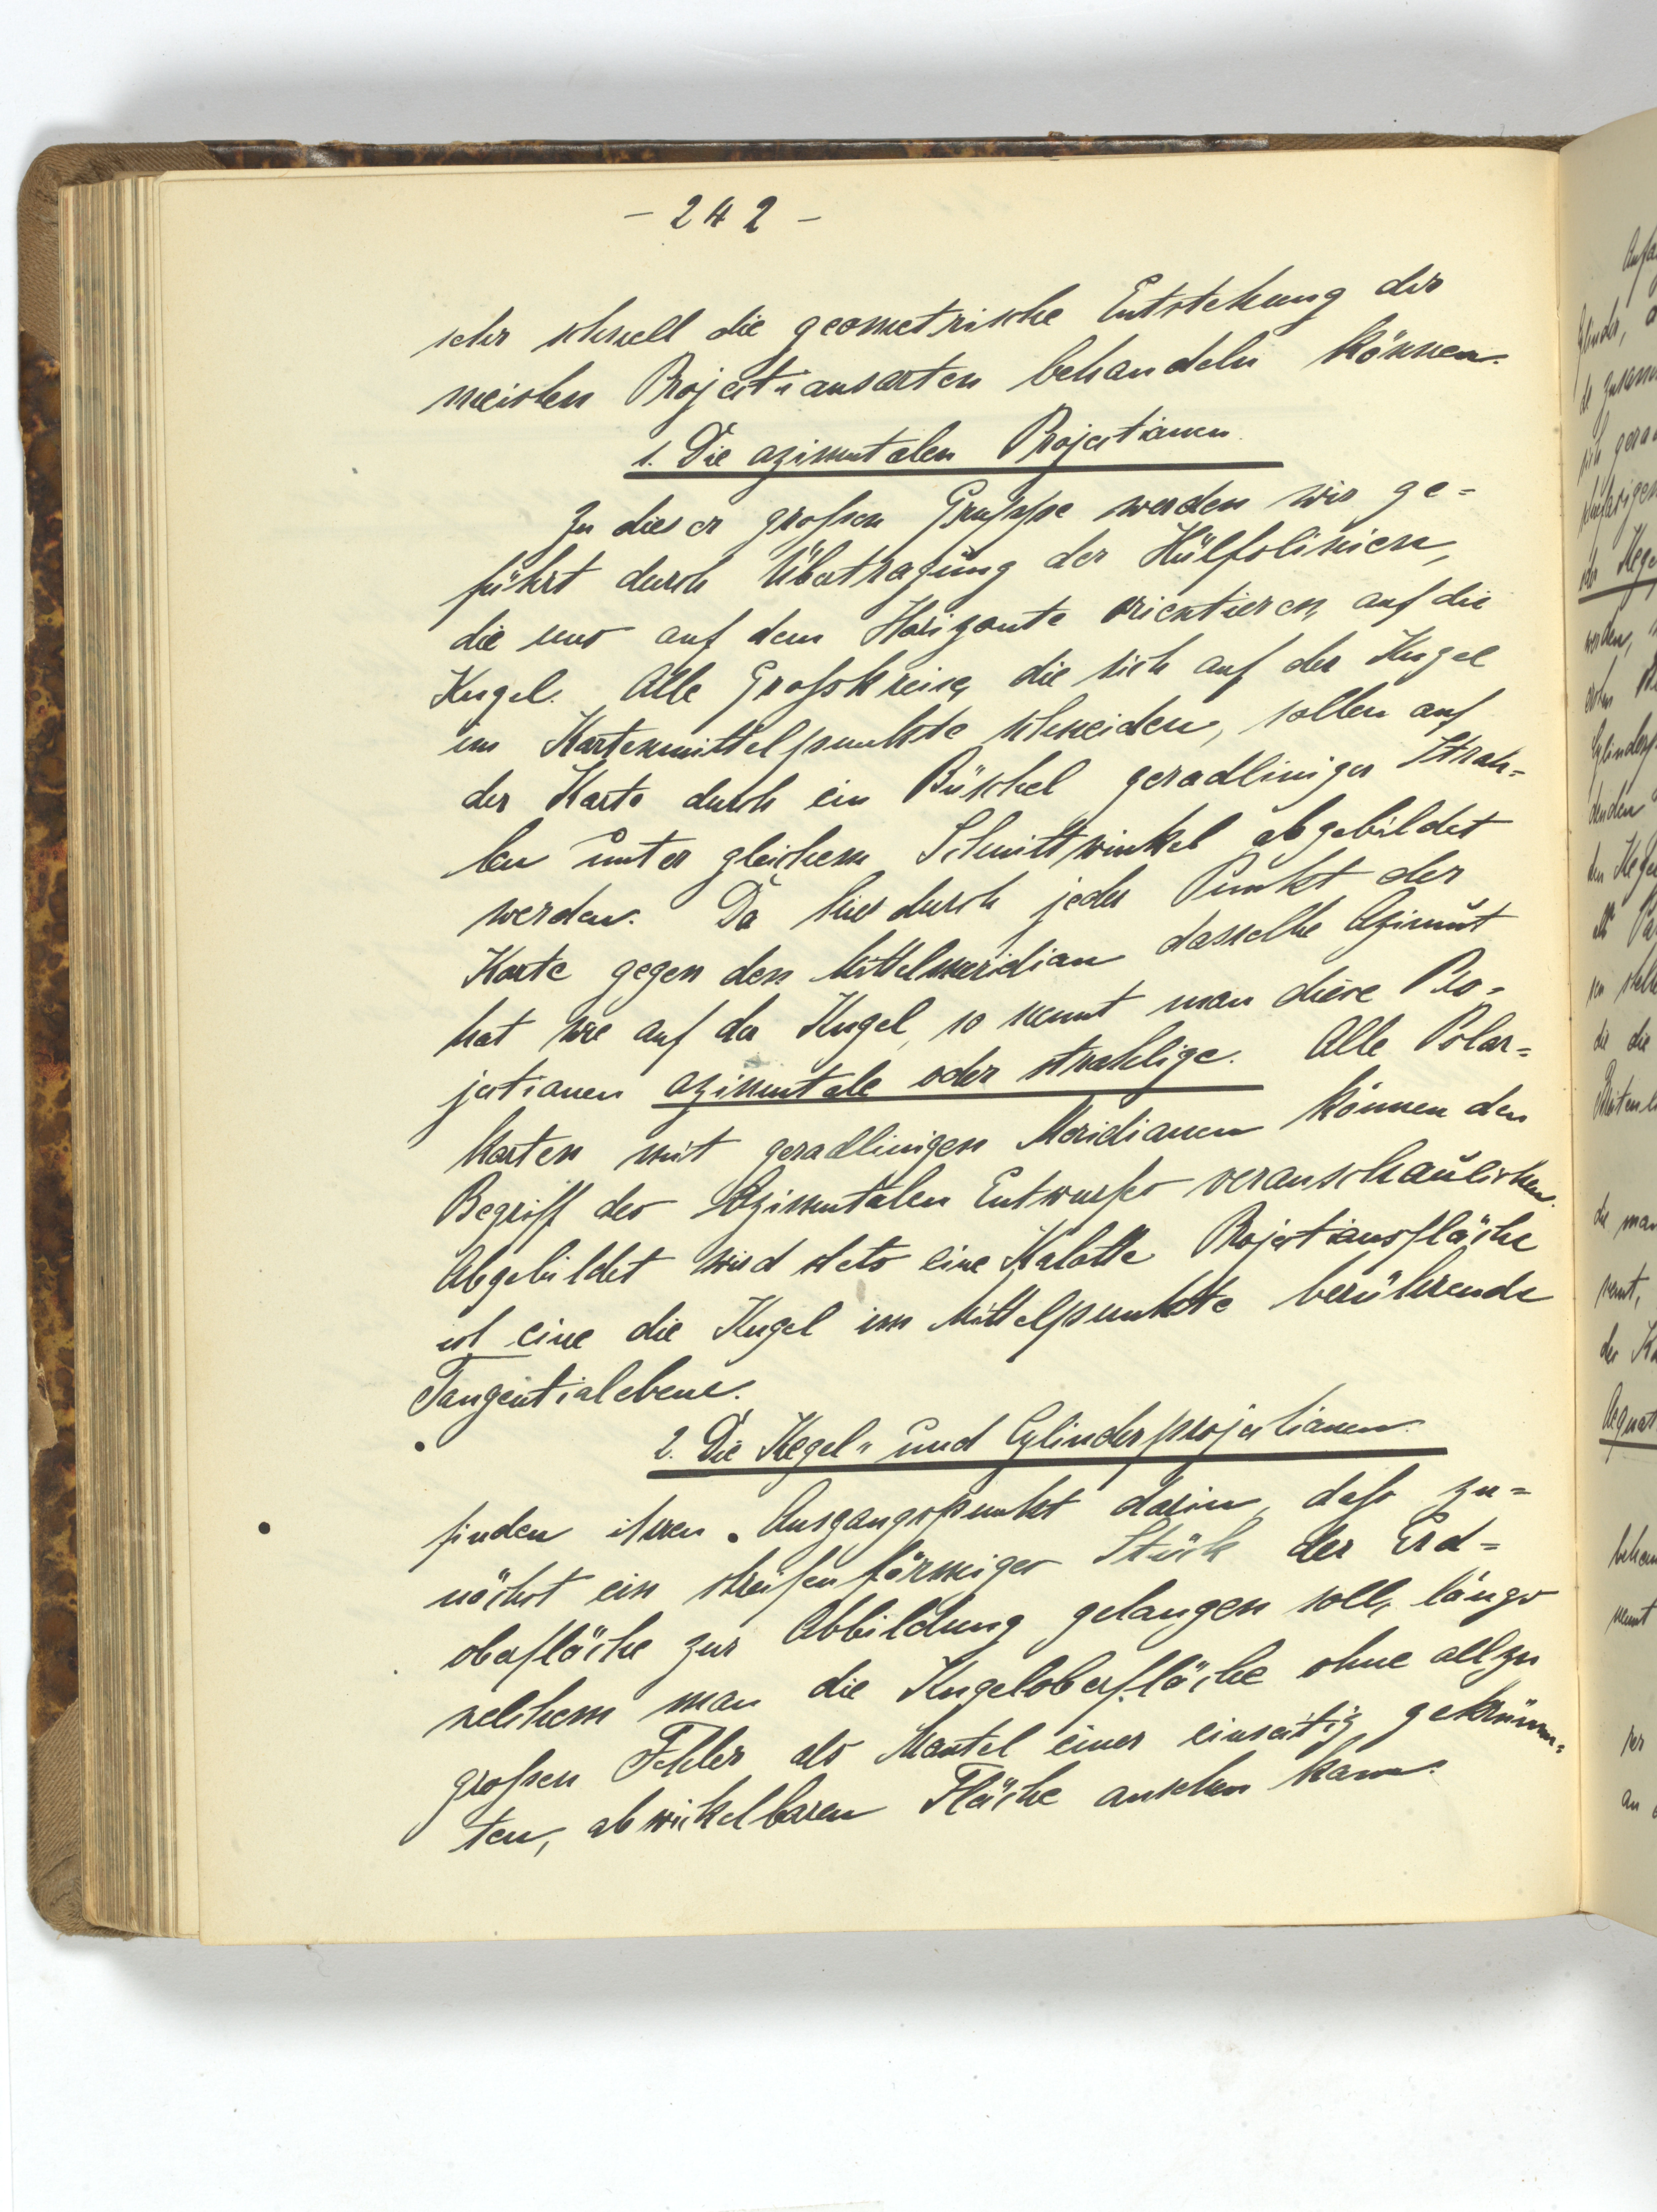 - 242 -
sehr schnell die geometrische Entstehung der
meisten Projectionsarten behandeln können.
1. Die azimutalen Projectionen.
Zu dieser großen Gruppe werden wir ge=
führt durch Übertragung der Hülfslinien,
die uns auf dem Horizonte orientieren, auf die
Kugel. Alle Großkreise, die sich auf der Kugel
im Kartenmittelpunkte schneiden, sollen auf
der Karte durch ein Büschel geradliniger Strah=
len unter gleichem Schnittwinkel abgebildet
werden. Da hierdurch jeder Punkt der
Karte gegen den Mittelmeridian dasselbe Azimut
hat wie auf der Kugel, so nennt man diese Pro=
jectionen azimutale oder strahlige. Alle Polar=
karten mit geradlinigen Meridianen können den
Begriff des Azimutalen Entwurfes veranschaulichen.
Abgebildet wird stets eine Kalotte. Projectionsfläche
ist eine die Kugel im Mittelpunkte berührende
Tangentialebene.
2. Die Kegel= und Cylinderprojectionen.
finden ihren Ausgangspunkt darin, daß zu=
nächst ein streifenförmiges Stück der Erd=
oberfläche zur Abbildung gelangen soll, längs
welchem man die Kugeloberfläche ohne allzu
großen Fehler als Mantel einer einseitig gekrümm=
ten, abwickelbaren Fläche ansehen kann.